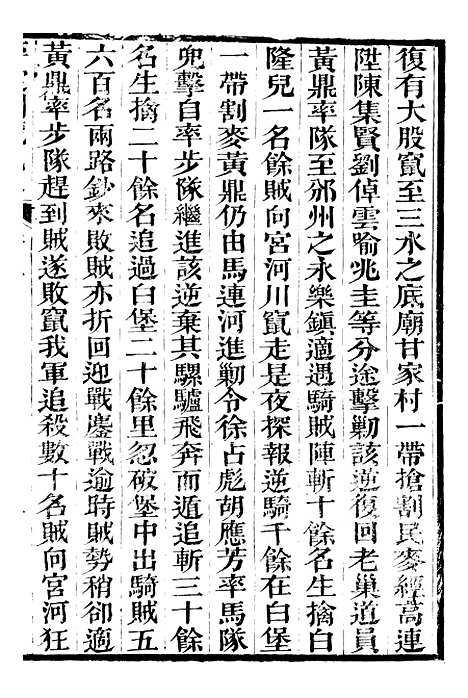 復有大股竄至三水之底廟甘家村一帶搶割民麥經高連
陞陳集賢劉倬雲喻兆圭等分途擊勦該逆復回老巢道員
黃鼎率隊至邠州之永樂鎮適遇騎賊陣斬十餘名生擒白
隆兒一名餘賊向宮河川竄走是夜探報逆騎千餘在白堡
一帶割麥黃鼎仍由馬連河進勦令徐占彪胡應芳率馬隊
兜擊自率步隊繼進該逆棄其騾驢飛奔而遁追斬三十餘
名生擒二十餘名追過白堡二十餘里忽破堡中出騎賊五
六百名兩路鈔來敗賊亦折回迎戰鏖戰逾時賊勢稍卻適
黃鼎率步隊趕到賊遂敗竄我軍追殺數十名賊向宮河狂